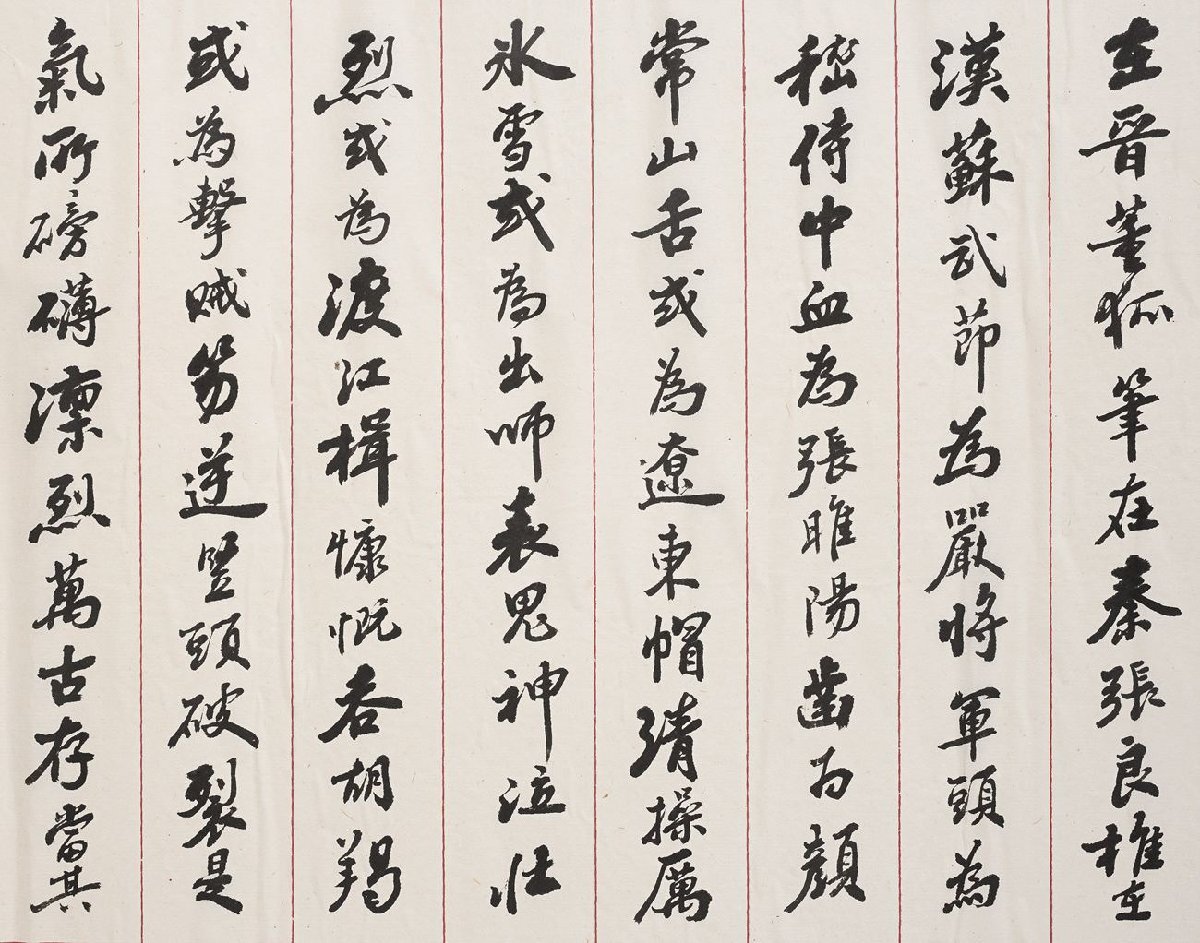 在晋董狐筆在秦張良椎在
漢蘇武節為嚴將軍頭為
嵇侍中血為張睢陽齒為顏
常山舌或為遼東帽清操厲
冰雪或為出師表鬼神泣壯
烈或為渡江楫慷慨吞胡羯
或為擊賊笏逆豎頭破裂是
氣所磅礴凜烈萬古存當其